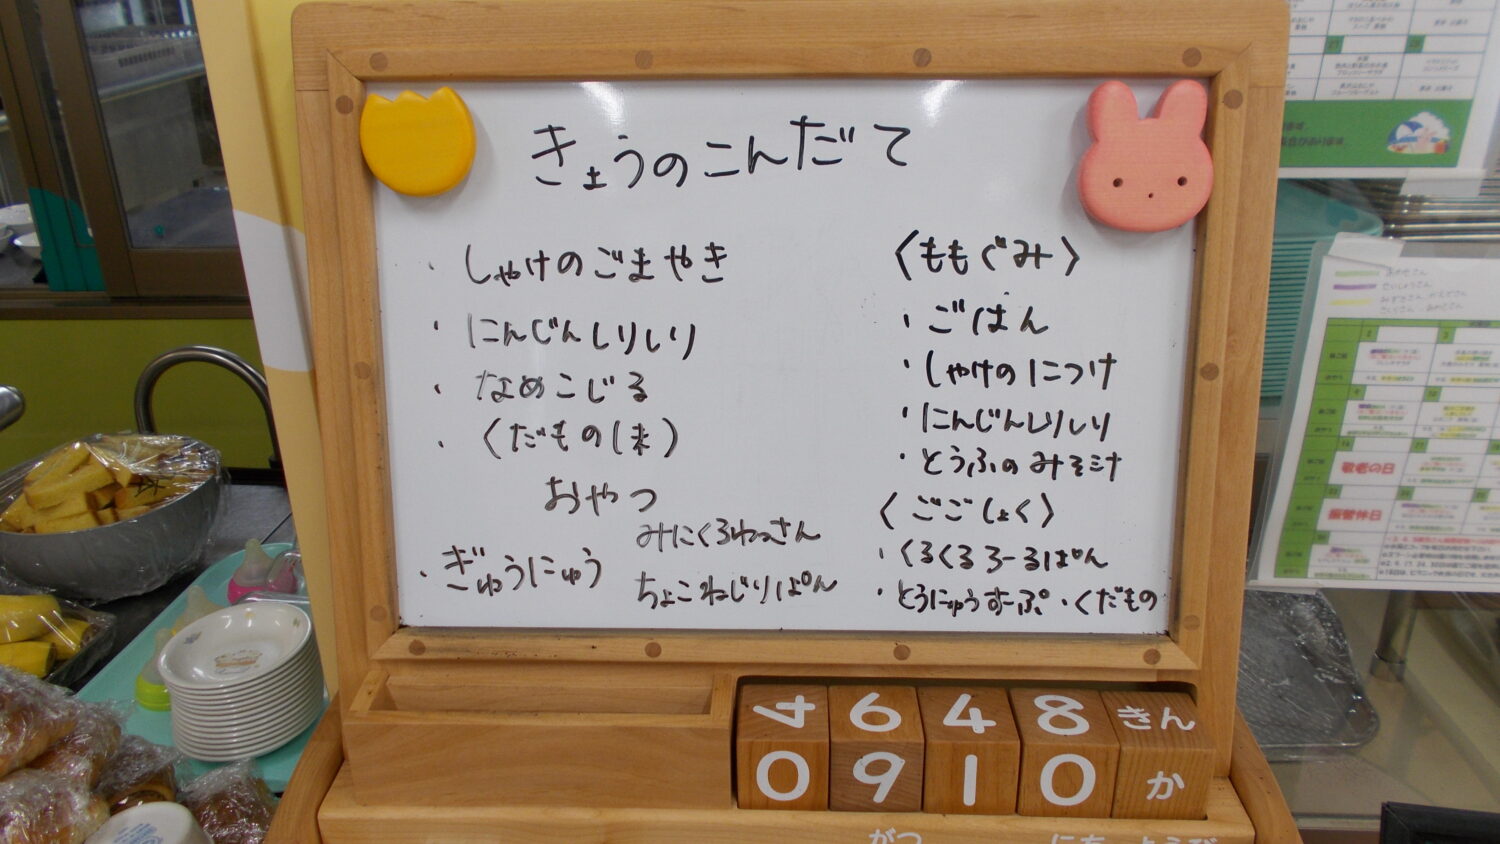 きょうのこんだて
・しゃけのごまやき
・にんじんしりしり
・なめこじる
・〈だもの(末)
おやつ
・ぎゅうにゅう
みにくろわっさん
ちょこねじりぱん
〈ももぐみ〉
・ごはん
・しゃけのにつけ
・にんじんしりしり
・とうふのみそ汁
〈ごごしょく〉
・くるくるろーるぱん
・とうにゅうすーぷ・くだもの
4 6 4 8 きん
0 9 1 0 か
がつ にち ようび
敬老の日
振替休日